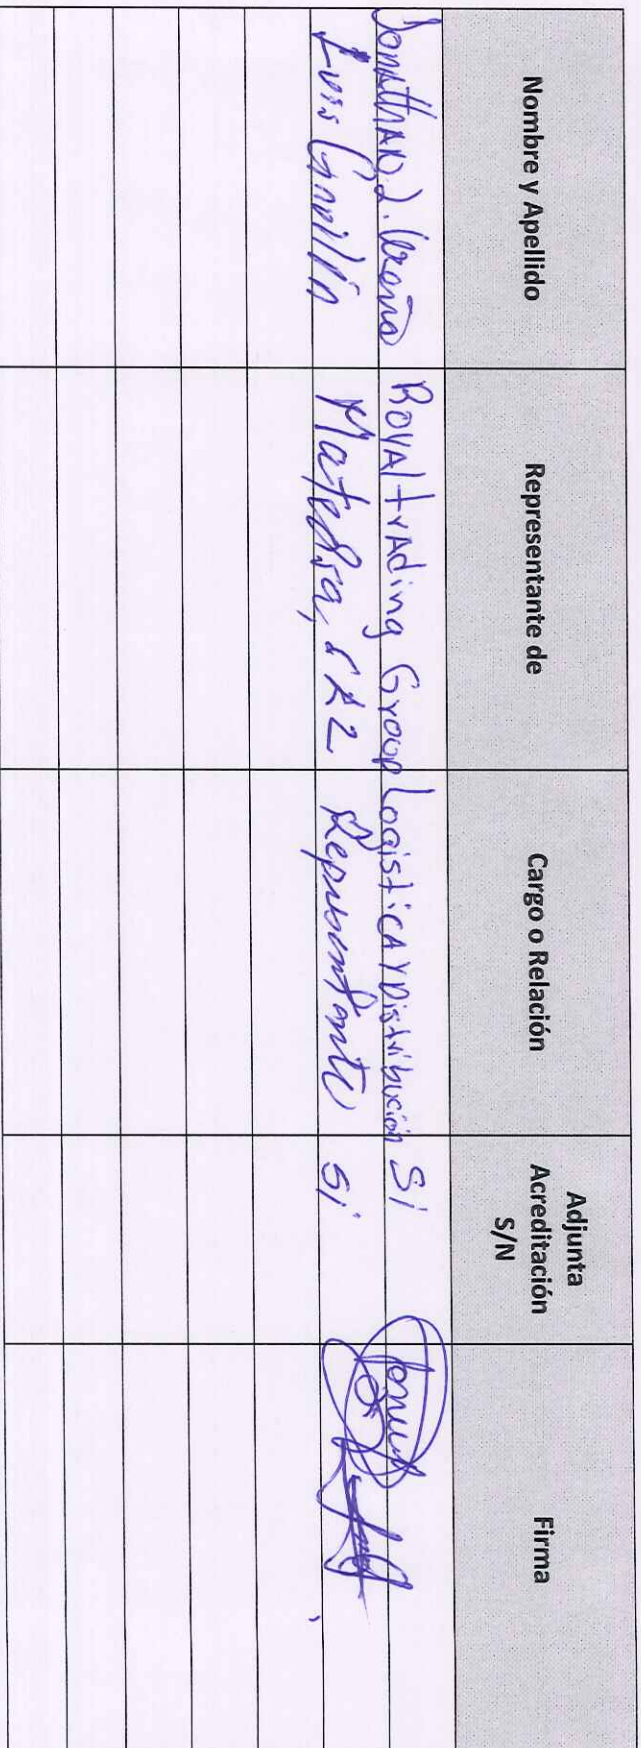 Nombre y Apellido
Representante de
Cargo o Relación
Adjunta
Acreditación
S/N
Firma
Jonathan J. Ureña
Royal trading Group
Logística y Distribución
Si
Luis
Representante
Si